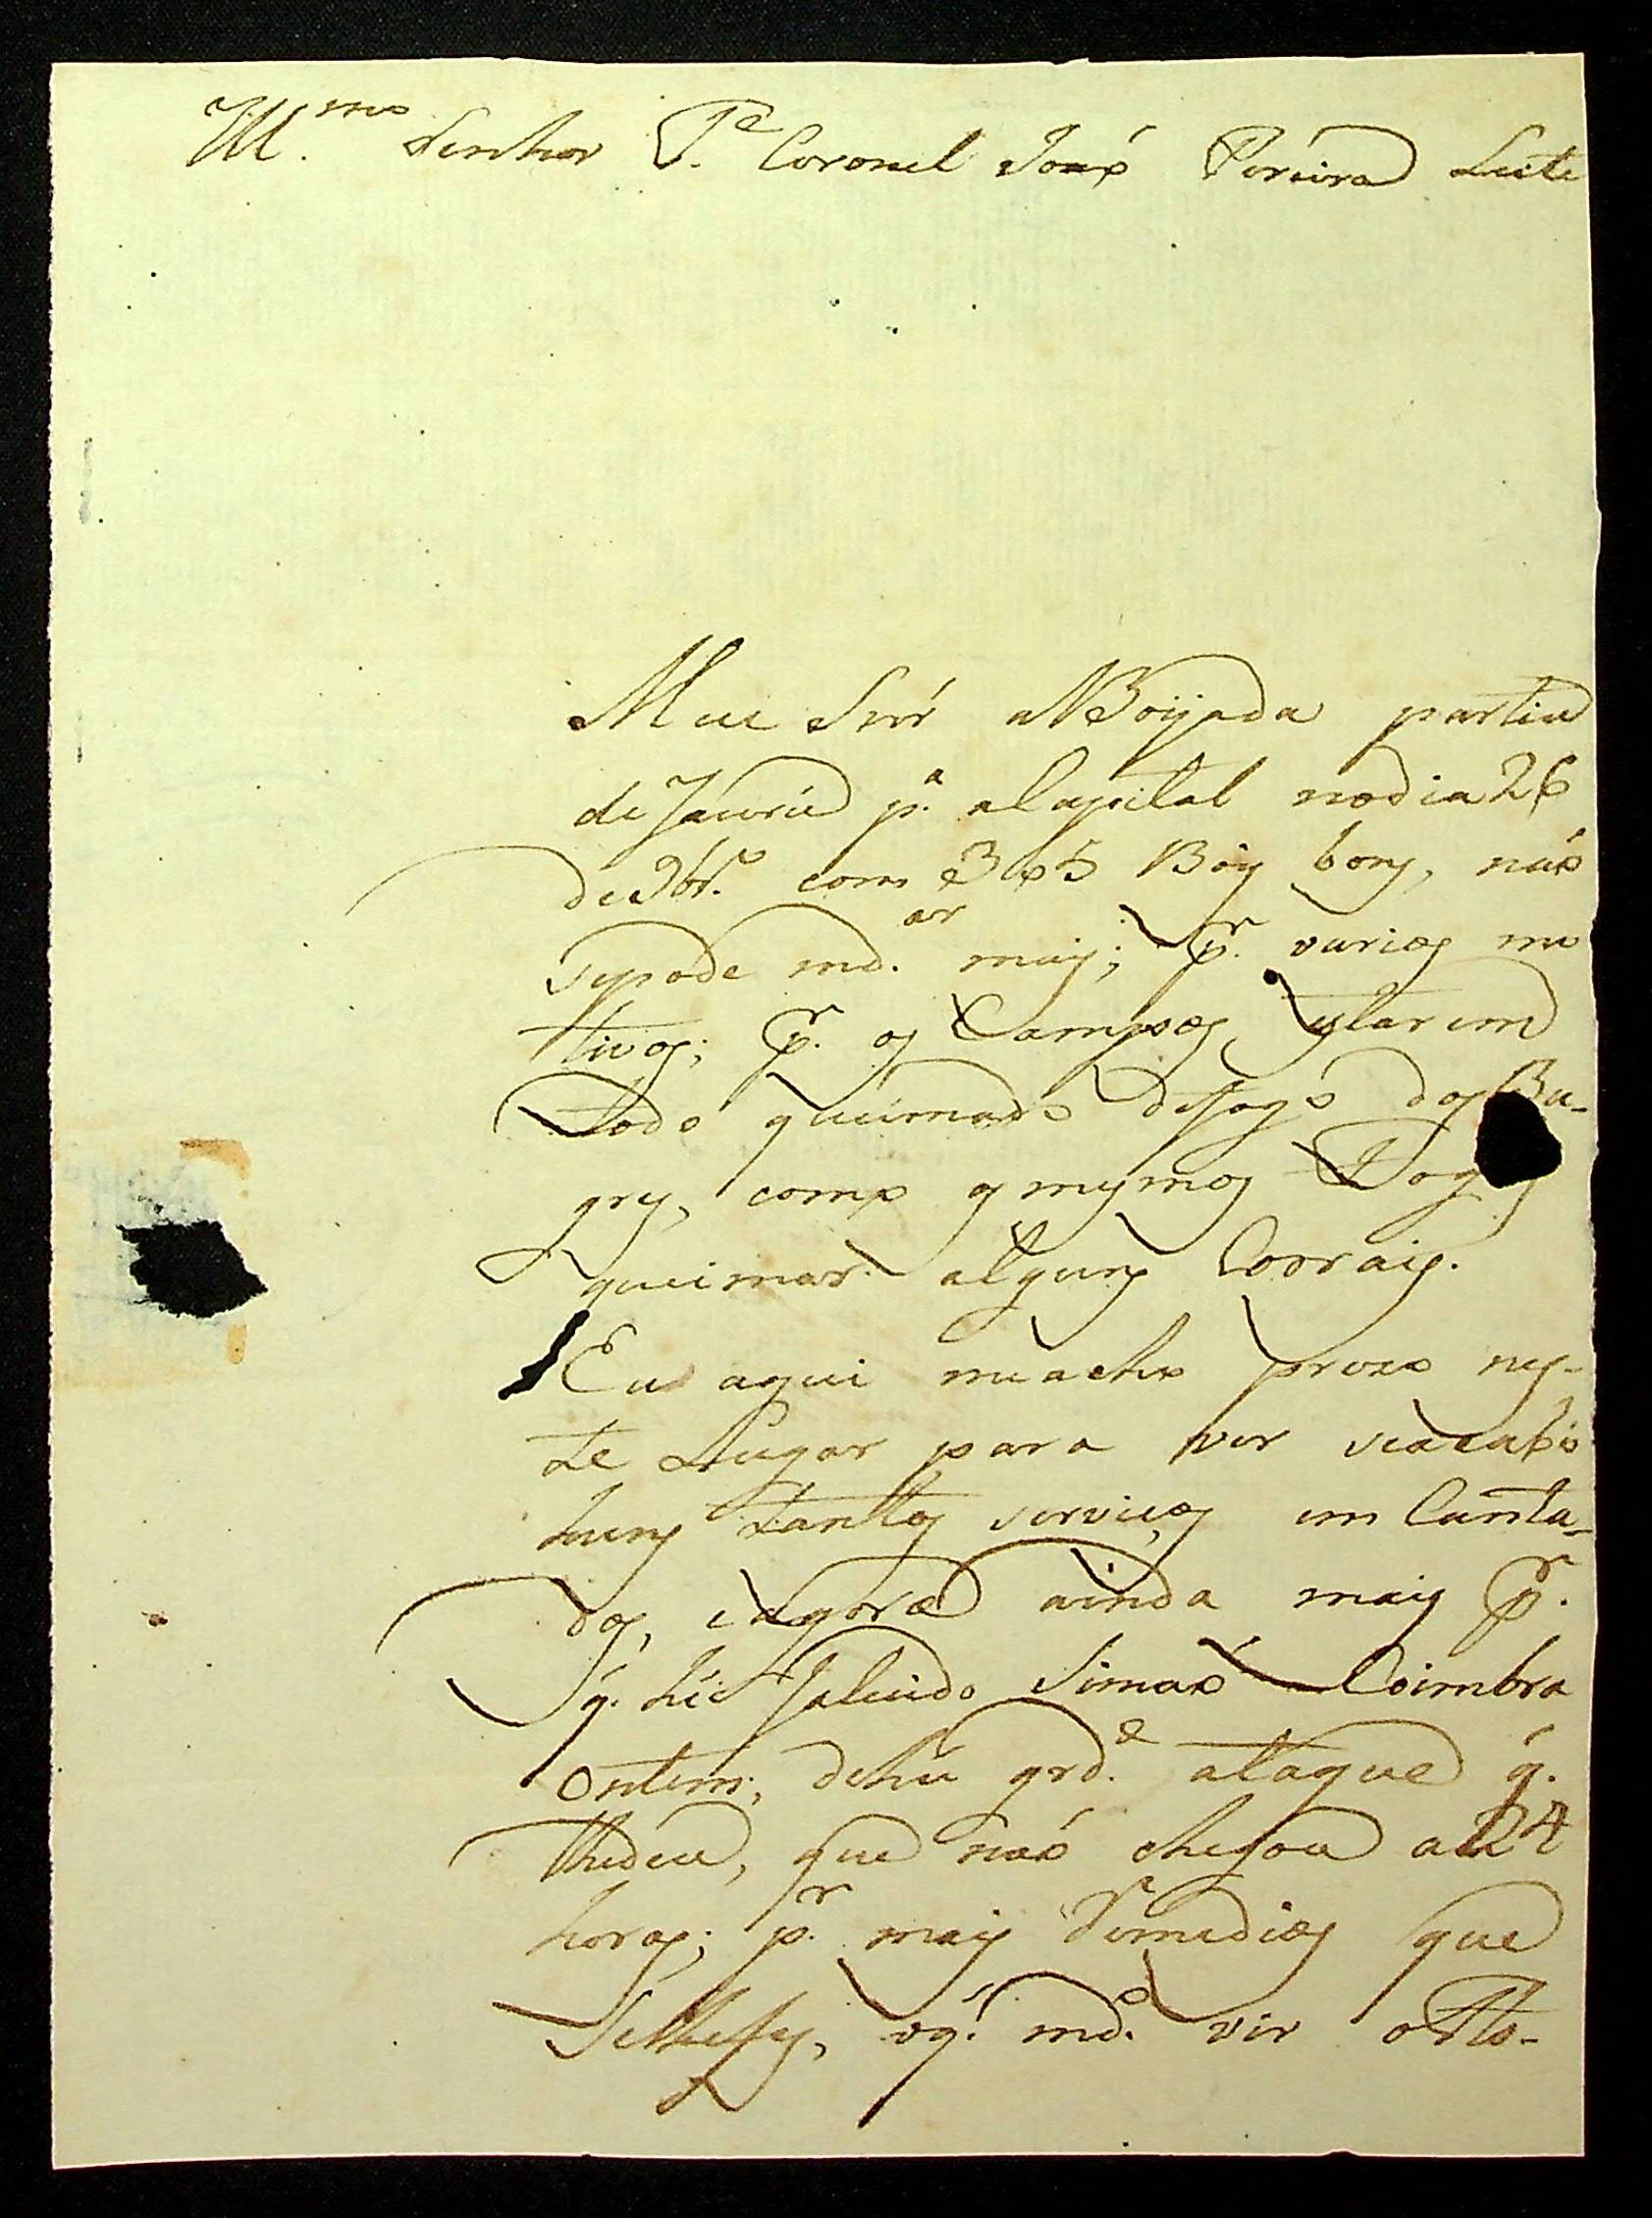 Ill.mo Senhor T.e Coronel Joaõ Pereira Leite
Meu Snr' a Boyada partiu
de Jaurú p.a a Capital nodia 26
de 9br.o com 365 Bois bons, naõ
sepode md.ar mais; p.r varios mo
tivos; p.r os Campos, estarem
todo queimado dofogo dos Bu-
gres, como os mesmos Fogos
queimar alguns Corrais.
Eu aqui meacho prezo nes-
te Lugar para ver seacabo
huns tantos serviços em Canta-
dos, eagora ainda mais p.r
q. he falecido Simaõ Coimbra
Ontem, dehũ grd.e ataque q.
lhedeu, que naõ chegou a 24
horas; p.r mais Remedios que
Selhefes, oq. md.o vir oRo-